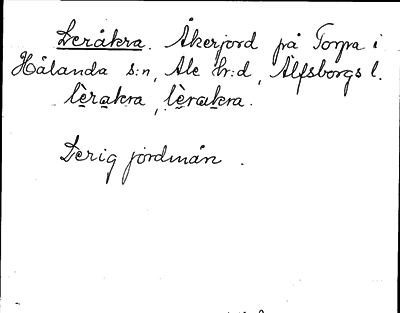 Leråkra. Åkerjord på Torpa i
Hålanda s:n, Ale hr:d, Älfsborgs l.
lèrakra, lèrakra.
Lerig jordmån.